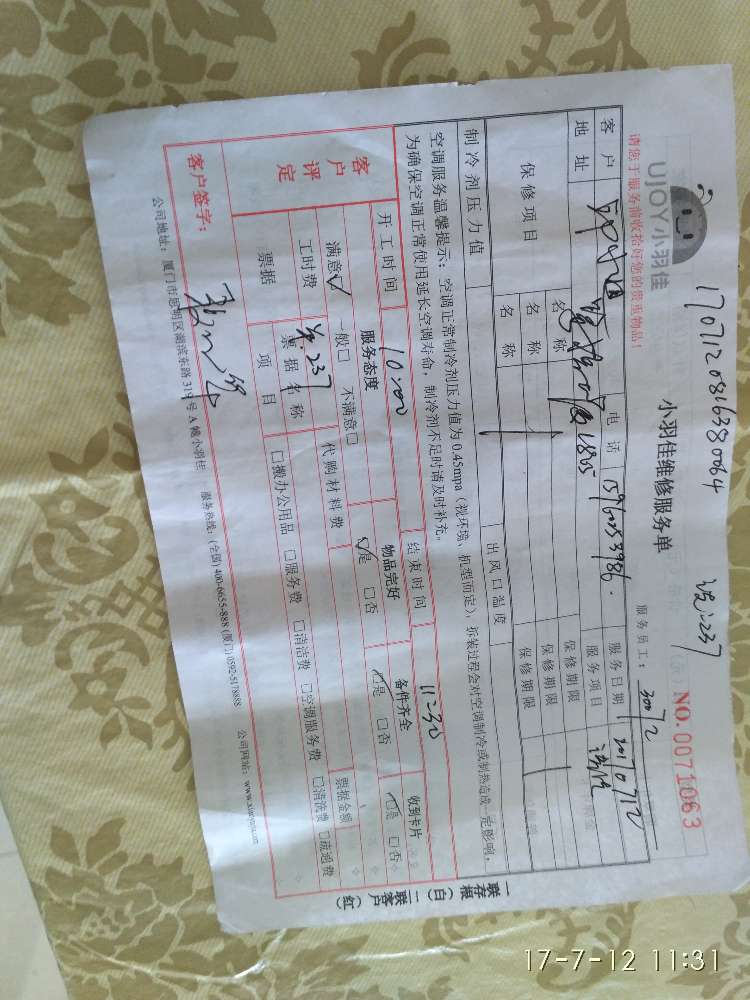 1707120816380064
UJOY小羽佳
小羽佳维修服务单
NO.0071063
请您于服务前收拾好您的贵重物品!
服务员工: 30072
客户 电话 15960053986. 服务日期 20170712
地址 1805 服务项目 清洗
保修项目 名称 保修期限
名称 保修期限
名称 保修期限
制冷剂压力值 出风口温度
空调服务温馨提示:空调正常制冷剂压力值为0.45mpa(视环境、机型而定),拆装过程会对空调制冷或制热造成一定影响,
为确保空调正常使用延长空调寿命,制冷剂不足时请及时补充。
开工时间 10:00 结束时间 11:30
客户评定 服务态度 物品完好 备件齐全 收到卡片
满意☑ 一般□ 不满意□ ☑是 □否 ☑是 □否 ☑是 □否
工时费 237 代购材料费 票据金额
票据 票据名称
项目 □搬办公用品 □服务费 □清洁费 □空调服务费 □清洗费 □疏通费
客户签字:
公司地址:厦门市思明区湖滨东路319号A幢小羽佳 服务热线:(全国)400-6655-888 (厦门)0592-5178888 公司网站:www.xiaoyujia.cn
一联存根(白)一联客户(红)
17-7-12 11:31